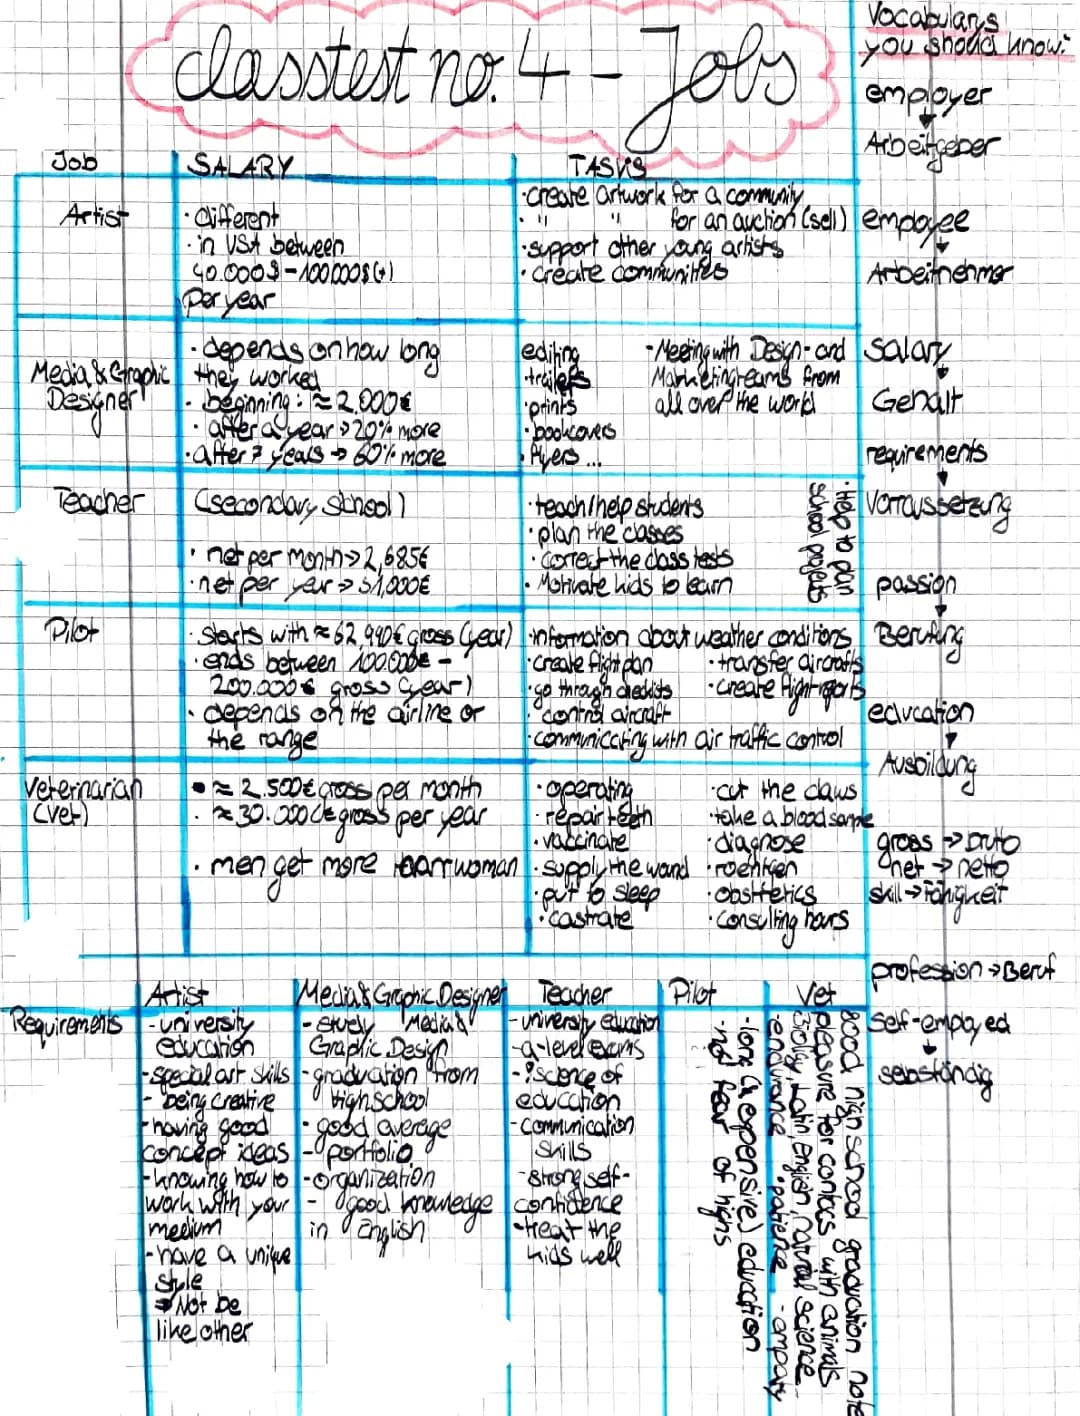 classtest no. 4 - Jobs
Job
SALARY
TASKS
Artist
· different
· in USA between
40.000$ - 100000$(+)
per year
· create artwork for a community
· " " for an auction (sell)
· support other young artists
· create communities
Media & Graphic
Designer
· depends on how long
they worked
· beginning: ≈ 2.000€
· after a year → 20% more
· after 7 years → 60% more
editing
· trailers
· prints
· bookcovers
· flyers ...
- Meeting with Design- and
Marketingteams from
all over the world
Teacher
(secondary school)
· net per month → 2,685€
· net per year → 31,000€
· teach/help students
· plan the classes
· correct the class tests
· Motivate kids to learn
· Help to plan
school projects
Pilot
· starts with ≈ 62,990€ gross (year)
· ends between 100.000€ -
200.000€ gross (year)
· depends on the airline or
the range
· information about weather conditions
· create flight plan
· go through checklists
· control aircraft
· communicating with air traffic control
· transfer aircrafts
· create flight reports
Veternarian
(vet)
· ≈ 2.500€ gross per month
· ≈ 30.000€ gross per year
· men get more woman
· operating
· repair teeth
· vaccinate
· supply the wand
· put to sleep
· castrate
· cut the claws
· take a blood sample
· diagnose
· roentgen
· obstetrics
· consulting hours
Vocabularys
you should know:
employer
↓
Arbeitgeber
employee
↓
Arbeitnehmer
salary
↓
Gehalt
requirements
↓
Vorraussetzung
passion
↓
Berufung
education
↓
Ausbildung
gross → bruto
net → netto
skill → Fähigkeit
profession → Beruf
self-employed
↓
selbständig
Artist
Media & Graphic Designer
Teacher
Pilot
Vet
Requirements
- university
education
- special art skills
- being creative
- having good
concept ideas
- knowing how to
work with your
medium
- have a unique
style
⇒ Not be
like other
- study "Media &
Graphic Design
- graduation from
Highschool
- good average
- portfolio
- organization
- good knowledge
in English
- university education
- a-level exams
- science of
education
- communication
skills
- strong self-
confidence
- treat the
kids well
- long (& expensive) education
- not fear of highs
good high school graduation note
pleasure for contacs with animals
Biology, Latin, English, natural science
- endurance · patience - empaty